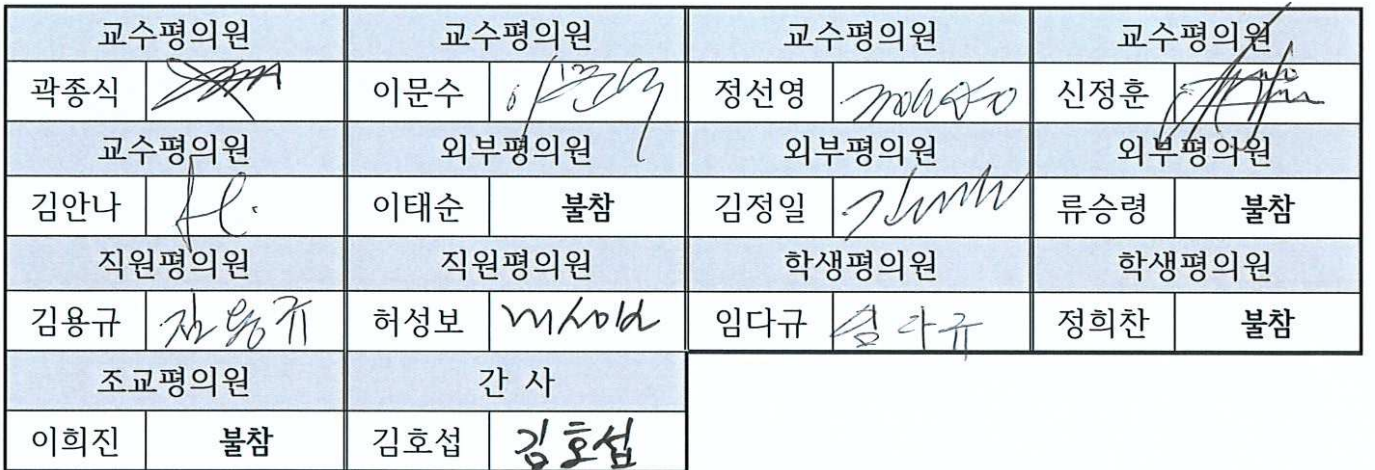 교수평의원 교수평의원 교수평의원 교수평의원
곽종식 이문수 이문수 정선영 신정훈
교수평의원 외부평의원 외부평의원 외부평의원
김안나 이태순 불참 김정일 류승령 불참
직원평의원 직원평의원 학생평의원 학생평의원
김용규 김용규 허성보 허성보 임다규 임다규 정희찬 불참
조교평의원 간 사
이희진 불참 김호섭 김호섭